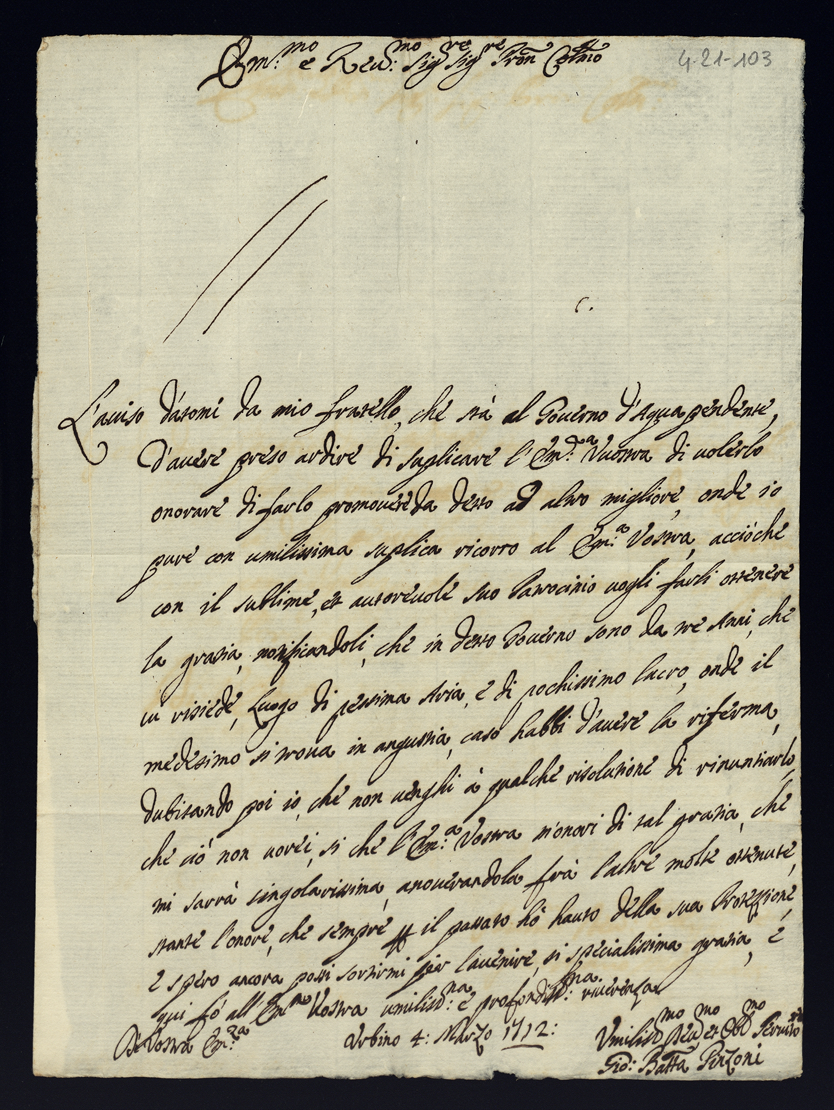 Em.mo e Reu.mo Sig.re Sig.re Pron Colmo
4-21-103
L'auiso datomi da mio fratello, che stà al Gouerno d'Aquapendente,
d'auere preso ardire di suplicare l'Em.za Vuostra di uolerlo
onorare di farlo promouere da detto ad altro migliore, onde io
pure con umilissima suplica ricorro al Em.a Vostra, acciòche
con il sublime, et autoreuole suo Patrocinio uogli farli ottenere
la gratia, notificandoli, che in detto Gouerno sono da tre Anni, che
ui rissiede, Luogo di pessima Aria, e di pochissimo lucro, onde il
medesimo si troua in angustia, caso habbi d'auere la rifferma,
dubitando poi io, che non uenghi à qualche risolutione di rinuntiarlo,
che ciò non uorei, si che l'Em.a Vostra m'onori di tal gratia, che
mi sarrà singolarissima, anouerandola frà l'altre molte ottenute,
stante l'onore, che sempre p il passato hò hauto della sua Protettione,
e spero ancora possi sortirmi per l'auenire, si specialissima gratia, e
qui fò all'Em.za Vostra umiliss.ma e profondiss.ma riuerenza
Di Vostra Em.za
Urbino 4: Marzo 1712:
Vmiliss.mo Deu.mo et Obl.mo Seruito.re
Gio: Batta Pinzoni